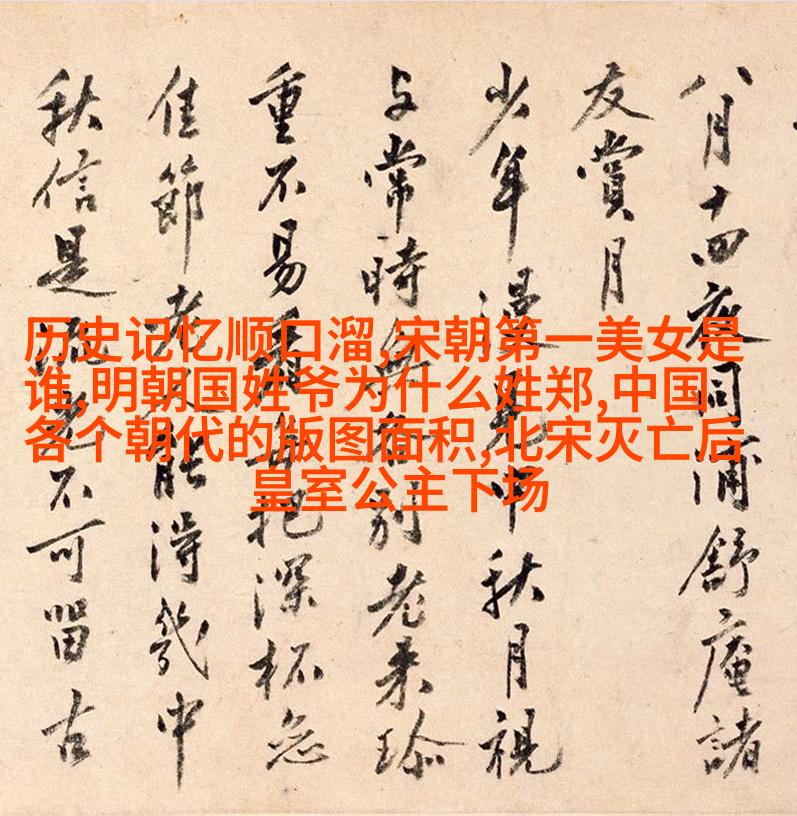 八月十四夜同浦舒庵諸
友賞月
少年漫見中秋月視
与常時無各別老来珎
重不易 每把深杯
佳節老人能得幾中
秋信是流光不可留古
历史记忆顺口溜,宋朝第一美女是
谁,明朝国姓爷为什么姓郑,中国
各个朝代的版图面积,北宋灭亡后
皇室公主下场